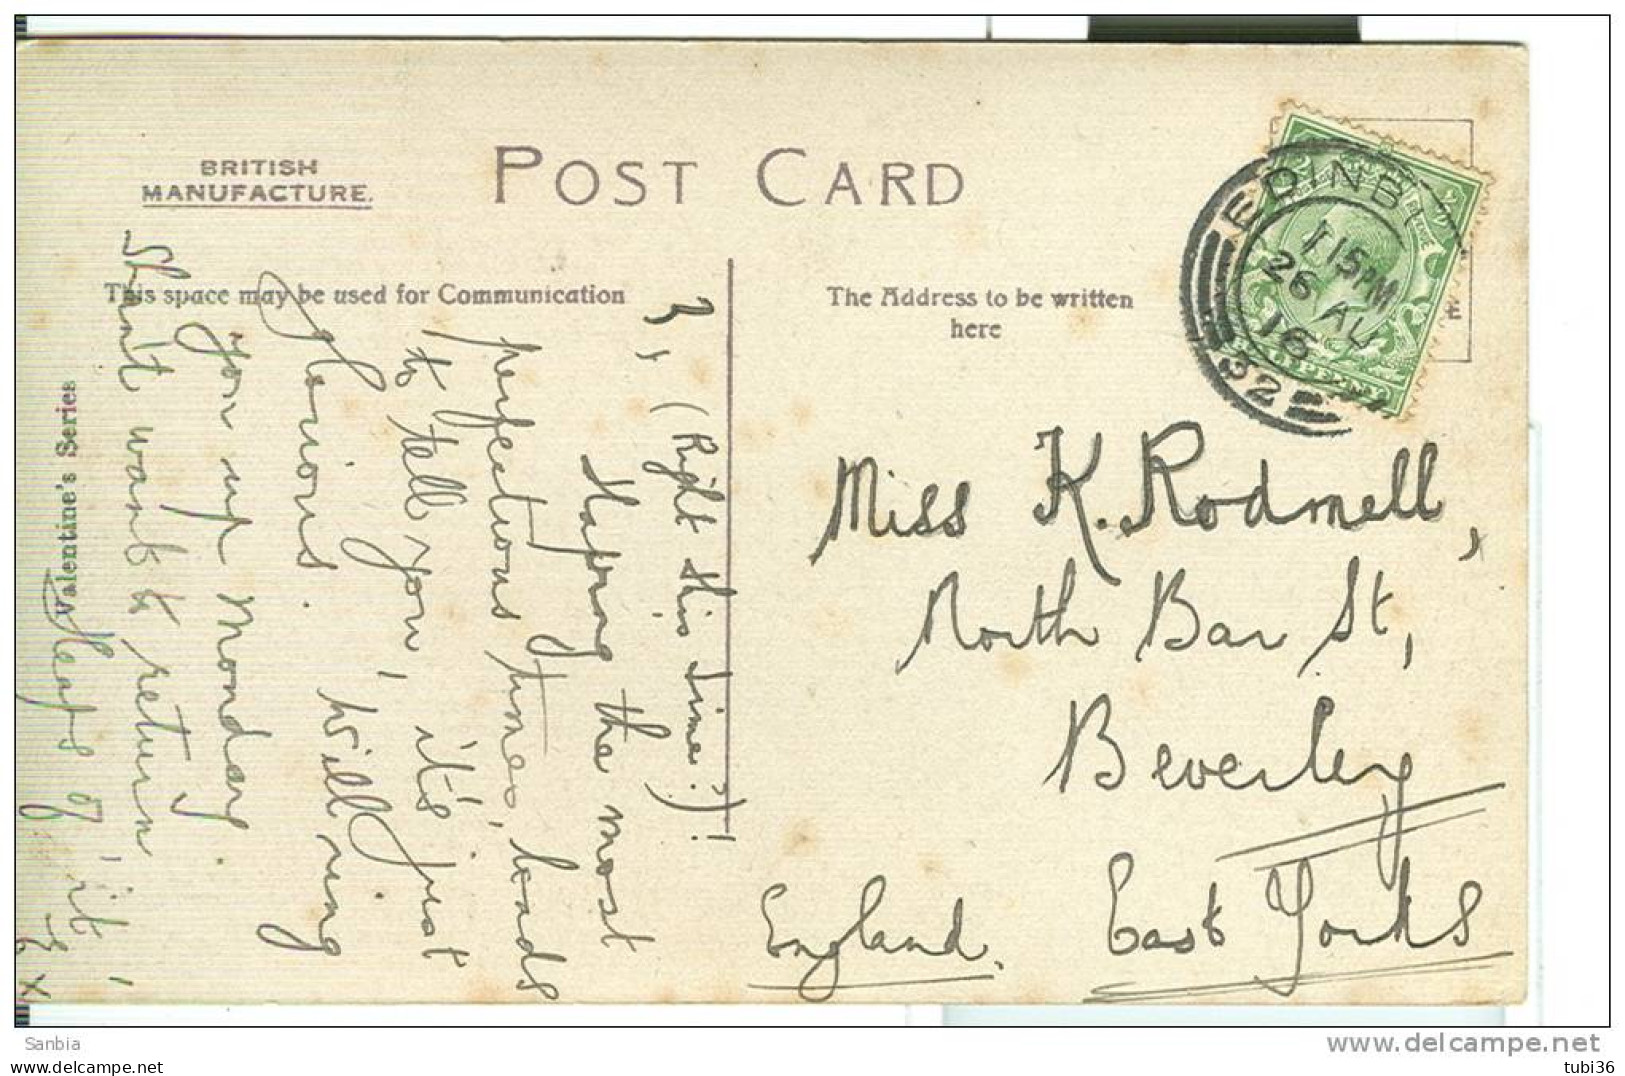 BRITISH
MANUFACTURE.
POST CARD
This space may be used for Communication
The Address to be written
here
Valentine's Series
EDINB
1 15 PM
26 AU
16
32
3, (Right this time?)!
Having the most
perfectious times, loads
to tell you, it's just
glorious. Will ring
you up Monday.
Shan't want to return
Heaps of it
Miss K. Rodmell,
North Bar St,
Beverley
East Yorks
England.
Sanbia
www.delcampe.net
tubi36